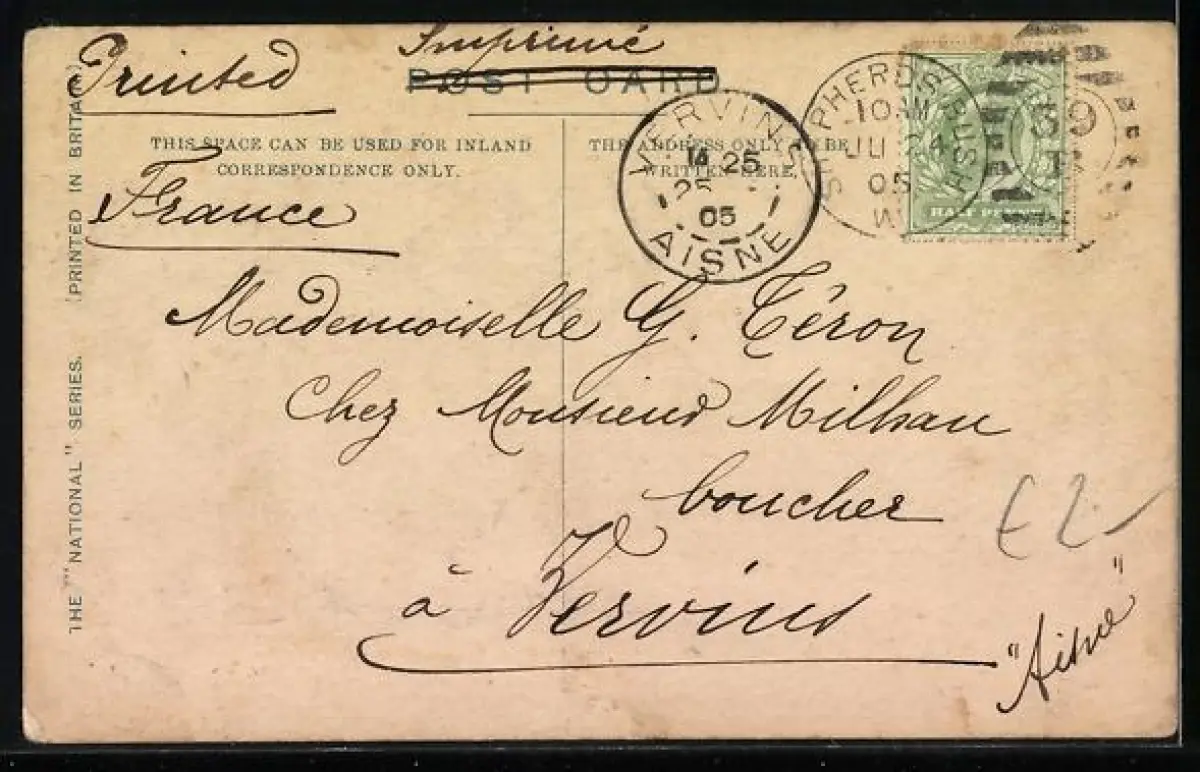 Imprimé
Printed
POST CARD
THIS SPACE CAN BE USED FOR INLAND
CORRESPONDENCE ONLY.
THE ADDRESS ONLY TO BE
WRITTEN HERE.
France
VERVINS
14 25
25
05
AISNE
SHEPHERD'S BUSH
10 AM
JU 24
05
W
HALF PENNY
Mademoiselle G. Céron
Chez Monsieur Milhau
boucher
à Vervins
"Aisne"
£2
THE "NATIONAL" SERIES. (PRINTED IN BRITAIN)